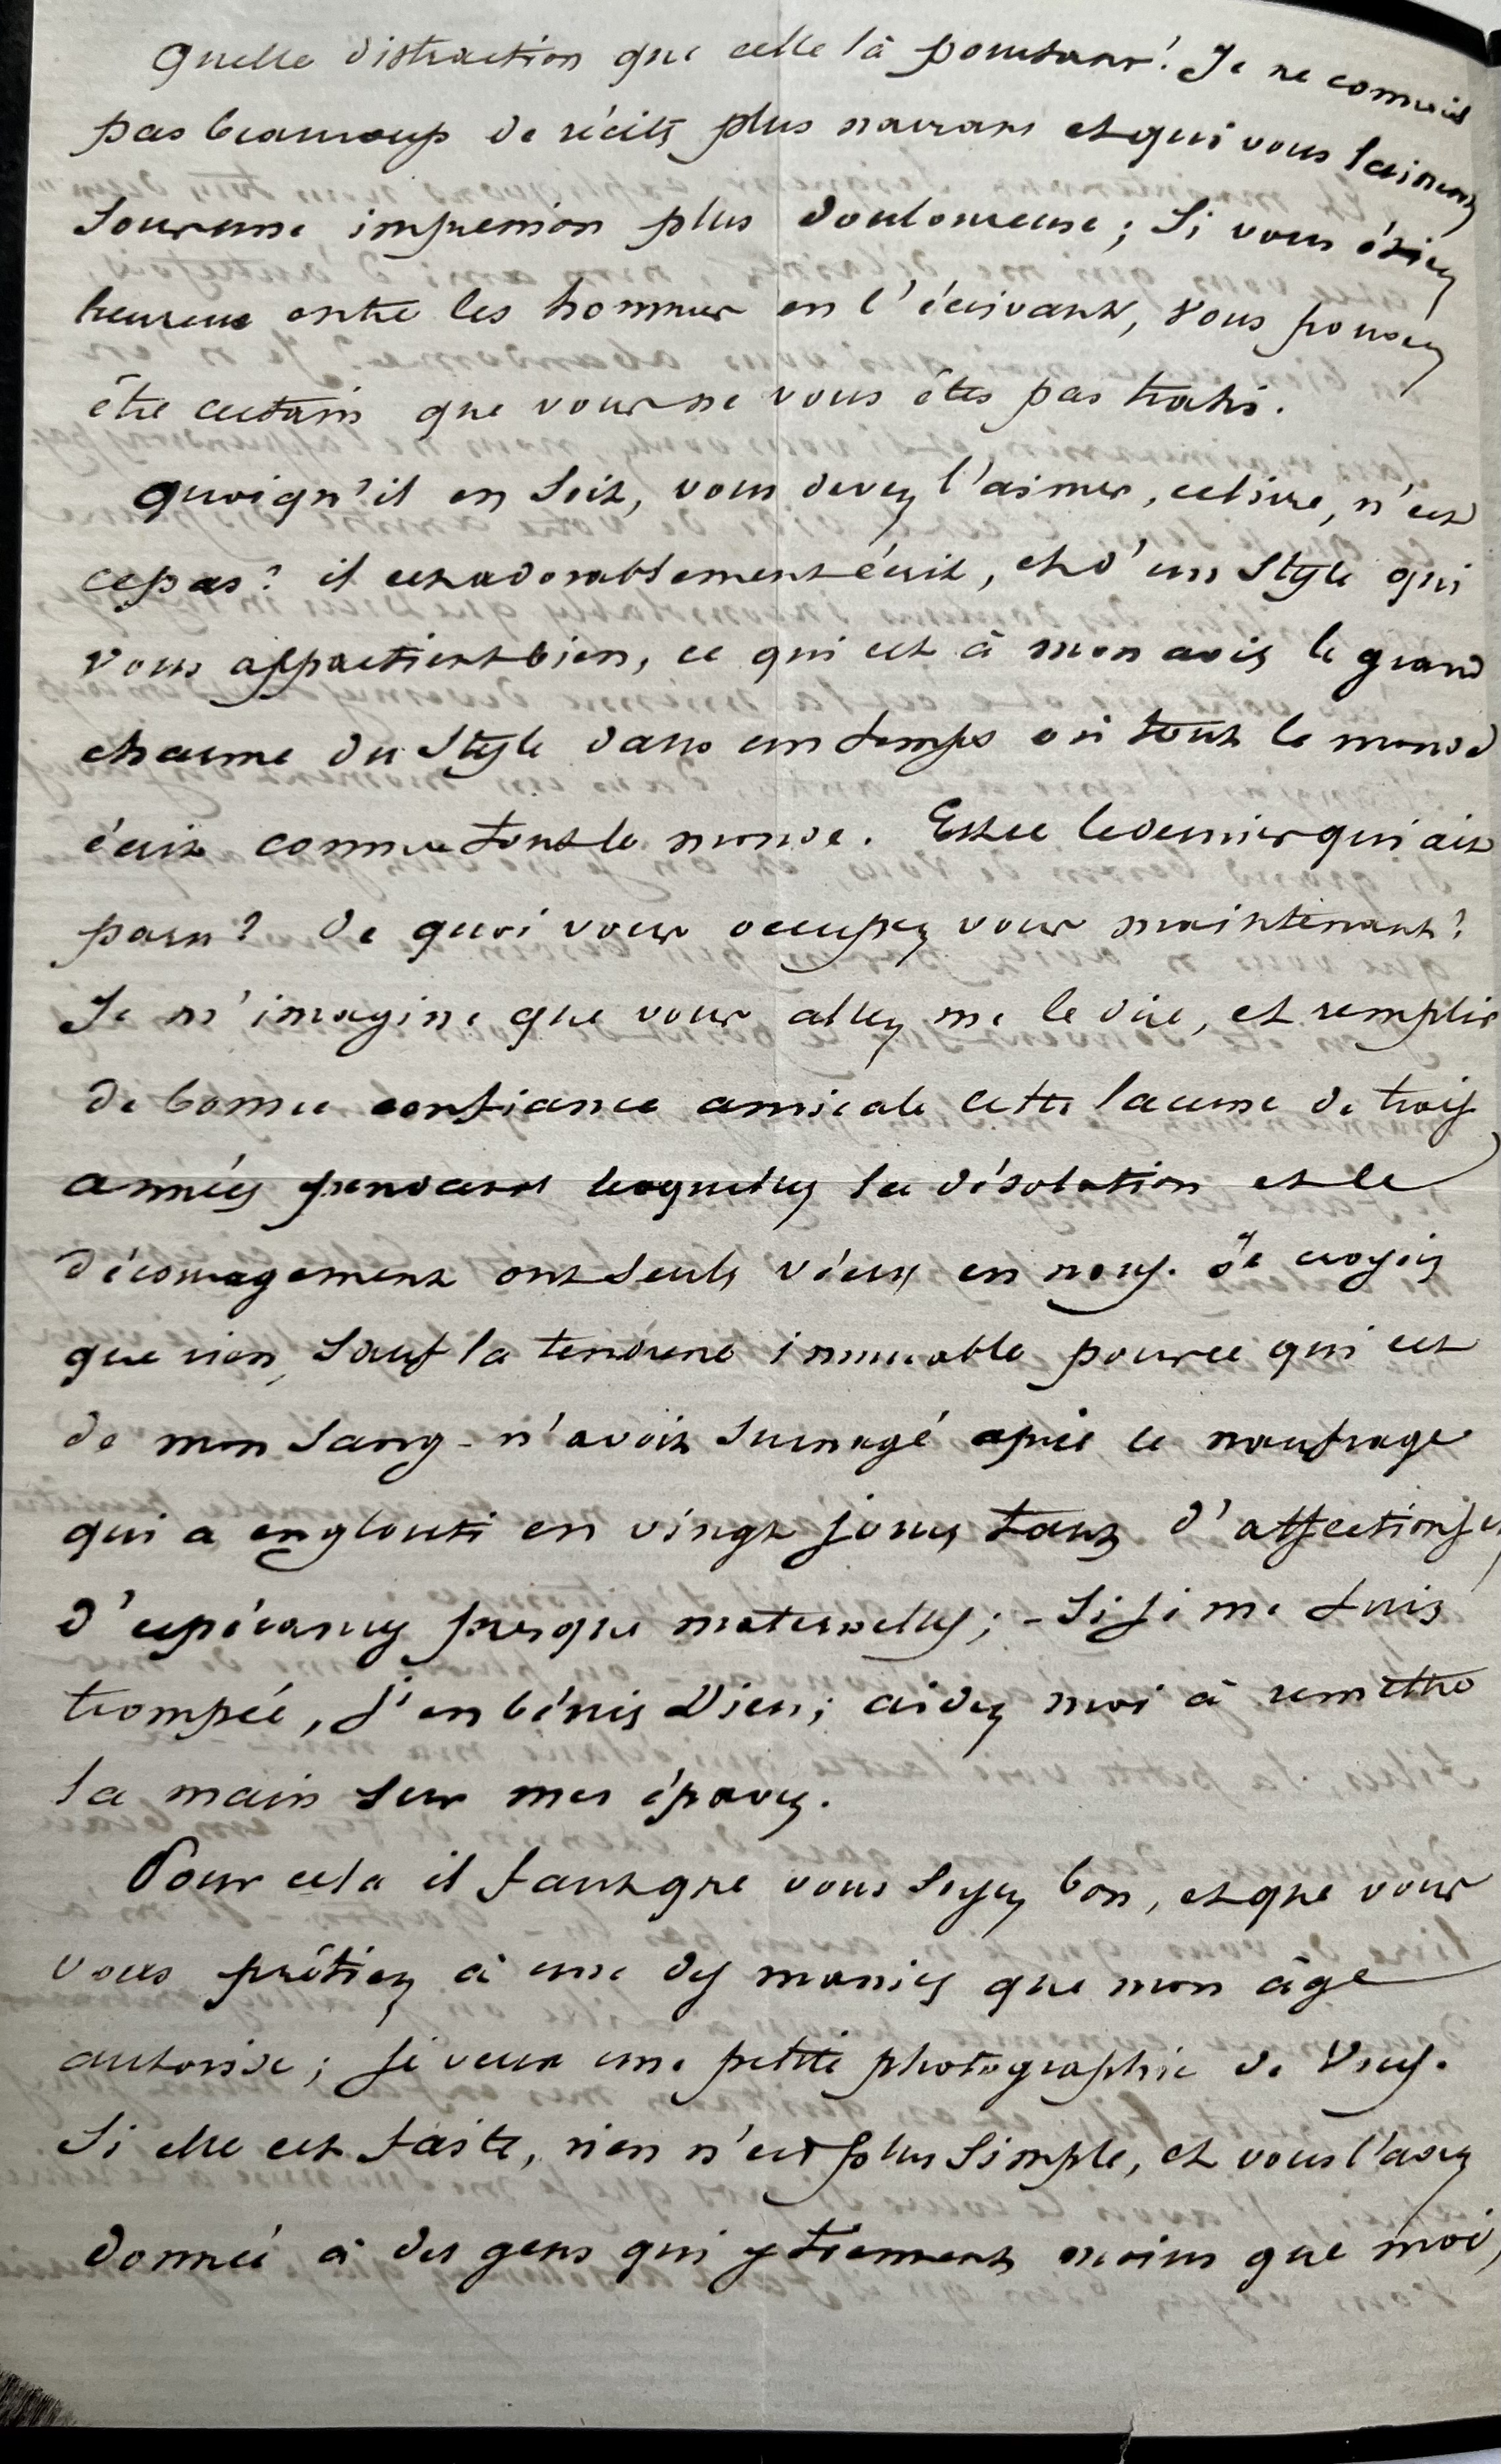 Quelle distraction que celle là pourtant! Je ne connais
pas beaucoup de récits plus navrans et qui vous laissent
sous une impression plus douloureuse; Si vous étiez
heureux entre les hommes en l'écrivant, vous pouvez
être certain que vous ne vous êtes pas trahi.
Quoiqu'il en soit, vous devez l'aimer, ce livre, n'est
ce pas? il est adorablement écrit, et d'un style qui
vous appartient bien, ce qui est à mon avis le grand
charme du style dans un temps où tout le monde
écrit comme tout le monde. Est ce le dernier qui ait
paru? De quoi vous occupez vous maintenant?
Je m'imagine que vous allez me le dire, et remplir
de bonne confiance amicale cette lacune de trois
années pendant lesquelles la désolation et le
découragement ont seuls vécu en nous. Je croyais
que rien, sauf la tendresse immuable pour ce qui est
de mon sang - n'avait surnagé après le naufrage
qui a englouti en vingt jours tant d'affections et
d'espérances presque maternelles; - Si je me suis
trompée, j'en bénis Dieu; aidez moi à remettre
la main sur mes épaves.
Pour cela il faut que vous soyez bon, et que vous
vous prêtiez à une des manies que mon âge
autorise; je veux une petite photographie de vous.
Si elle est faite, rien n'est plus simple, et vous l'avez
donnée à des gens qui y tiennent moins que moi,